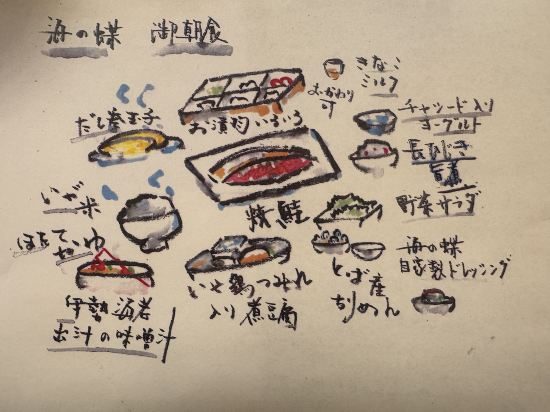 海の蝶 御朝食
きなこ
ミルク
おかわり
可
お漬物いろいろ
だし巻玉子
チャツード入り
ヨーグルト
長ひじき
旨煮
いが米
焼鮭
野菜サラダ
海の蝶
自家製ドレッシング
いせ鶏つみれ
入り煮豆腐
とば産
ちりめん
伊勢海老
出汁の味噌汁